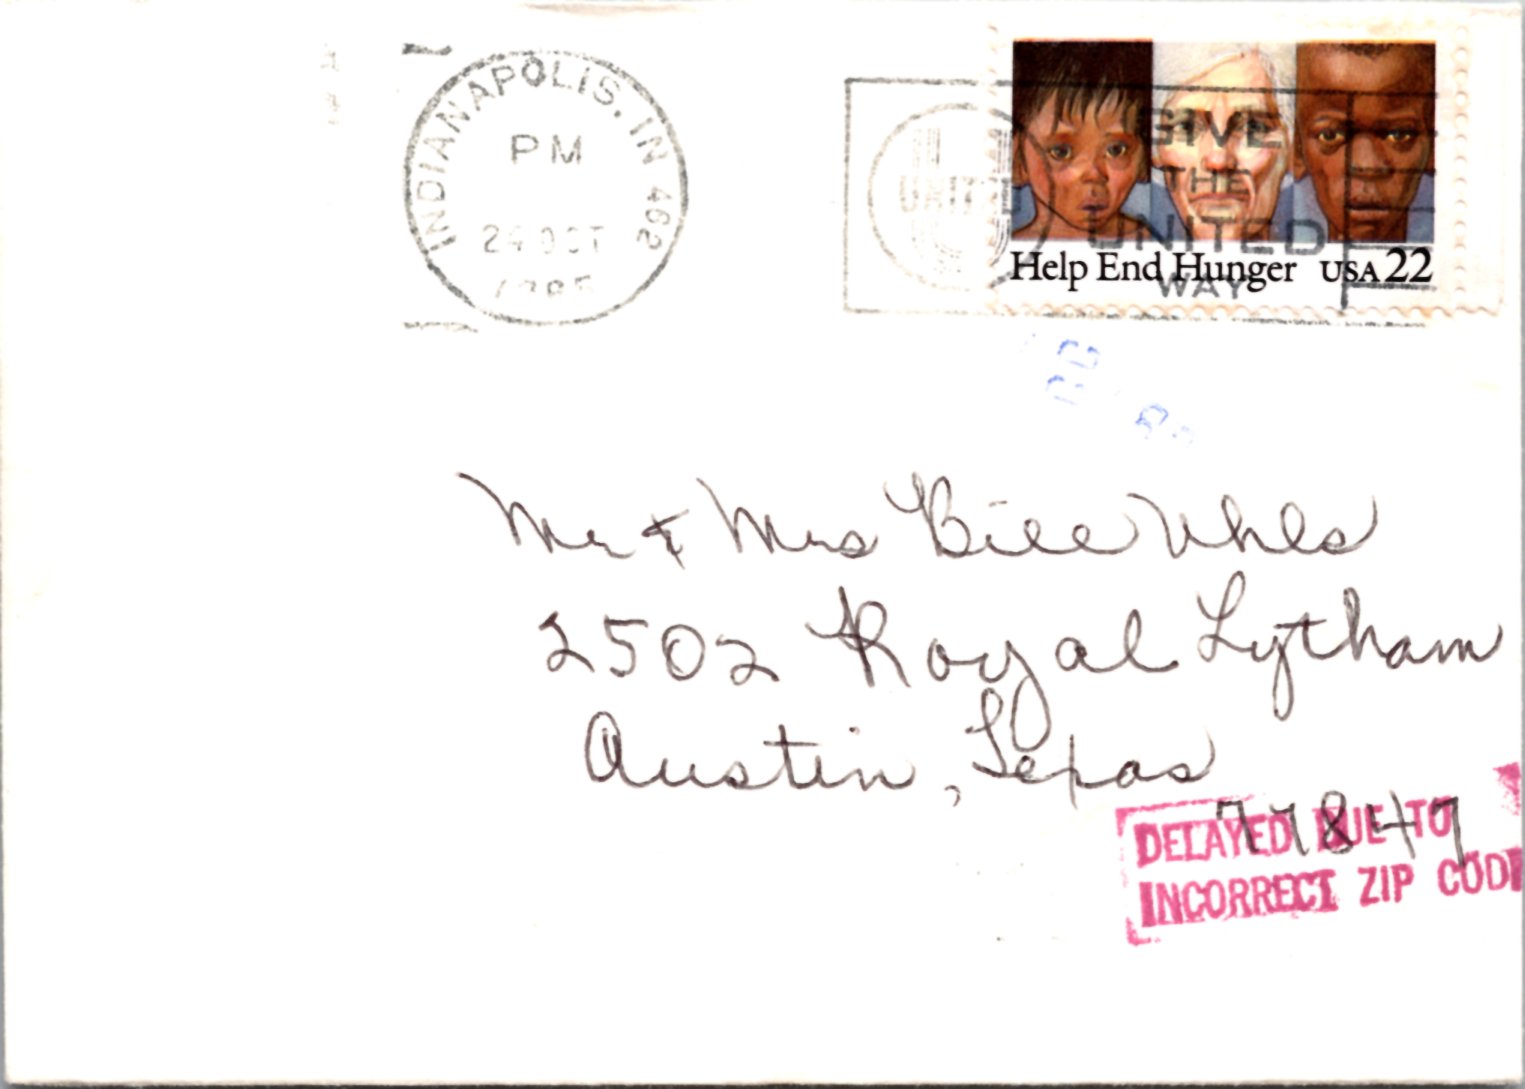 INDIANAPOLIS, IN 462
PM
24 OCT
1985
UNITED
GIVE
THE
UNITED
WAY
Help End Hunger USA 22
Mr & Mrs Bill Uhls
2502 Royal Lytham
Austin, Texas
77847
DELAYED DUE TO
INCORRECT ZIP CODE